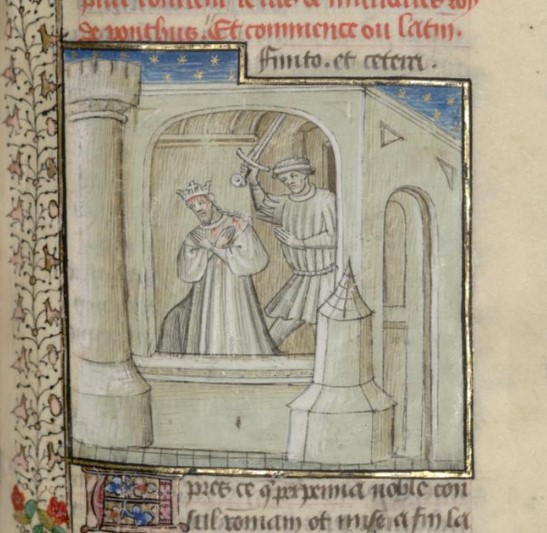 de ponthus. Et commence ou latin.
finito. et cetera.
pres ce q̄ perpenna noble con
sul romain ot mise a fin la